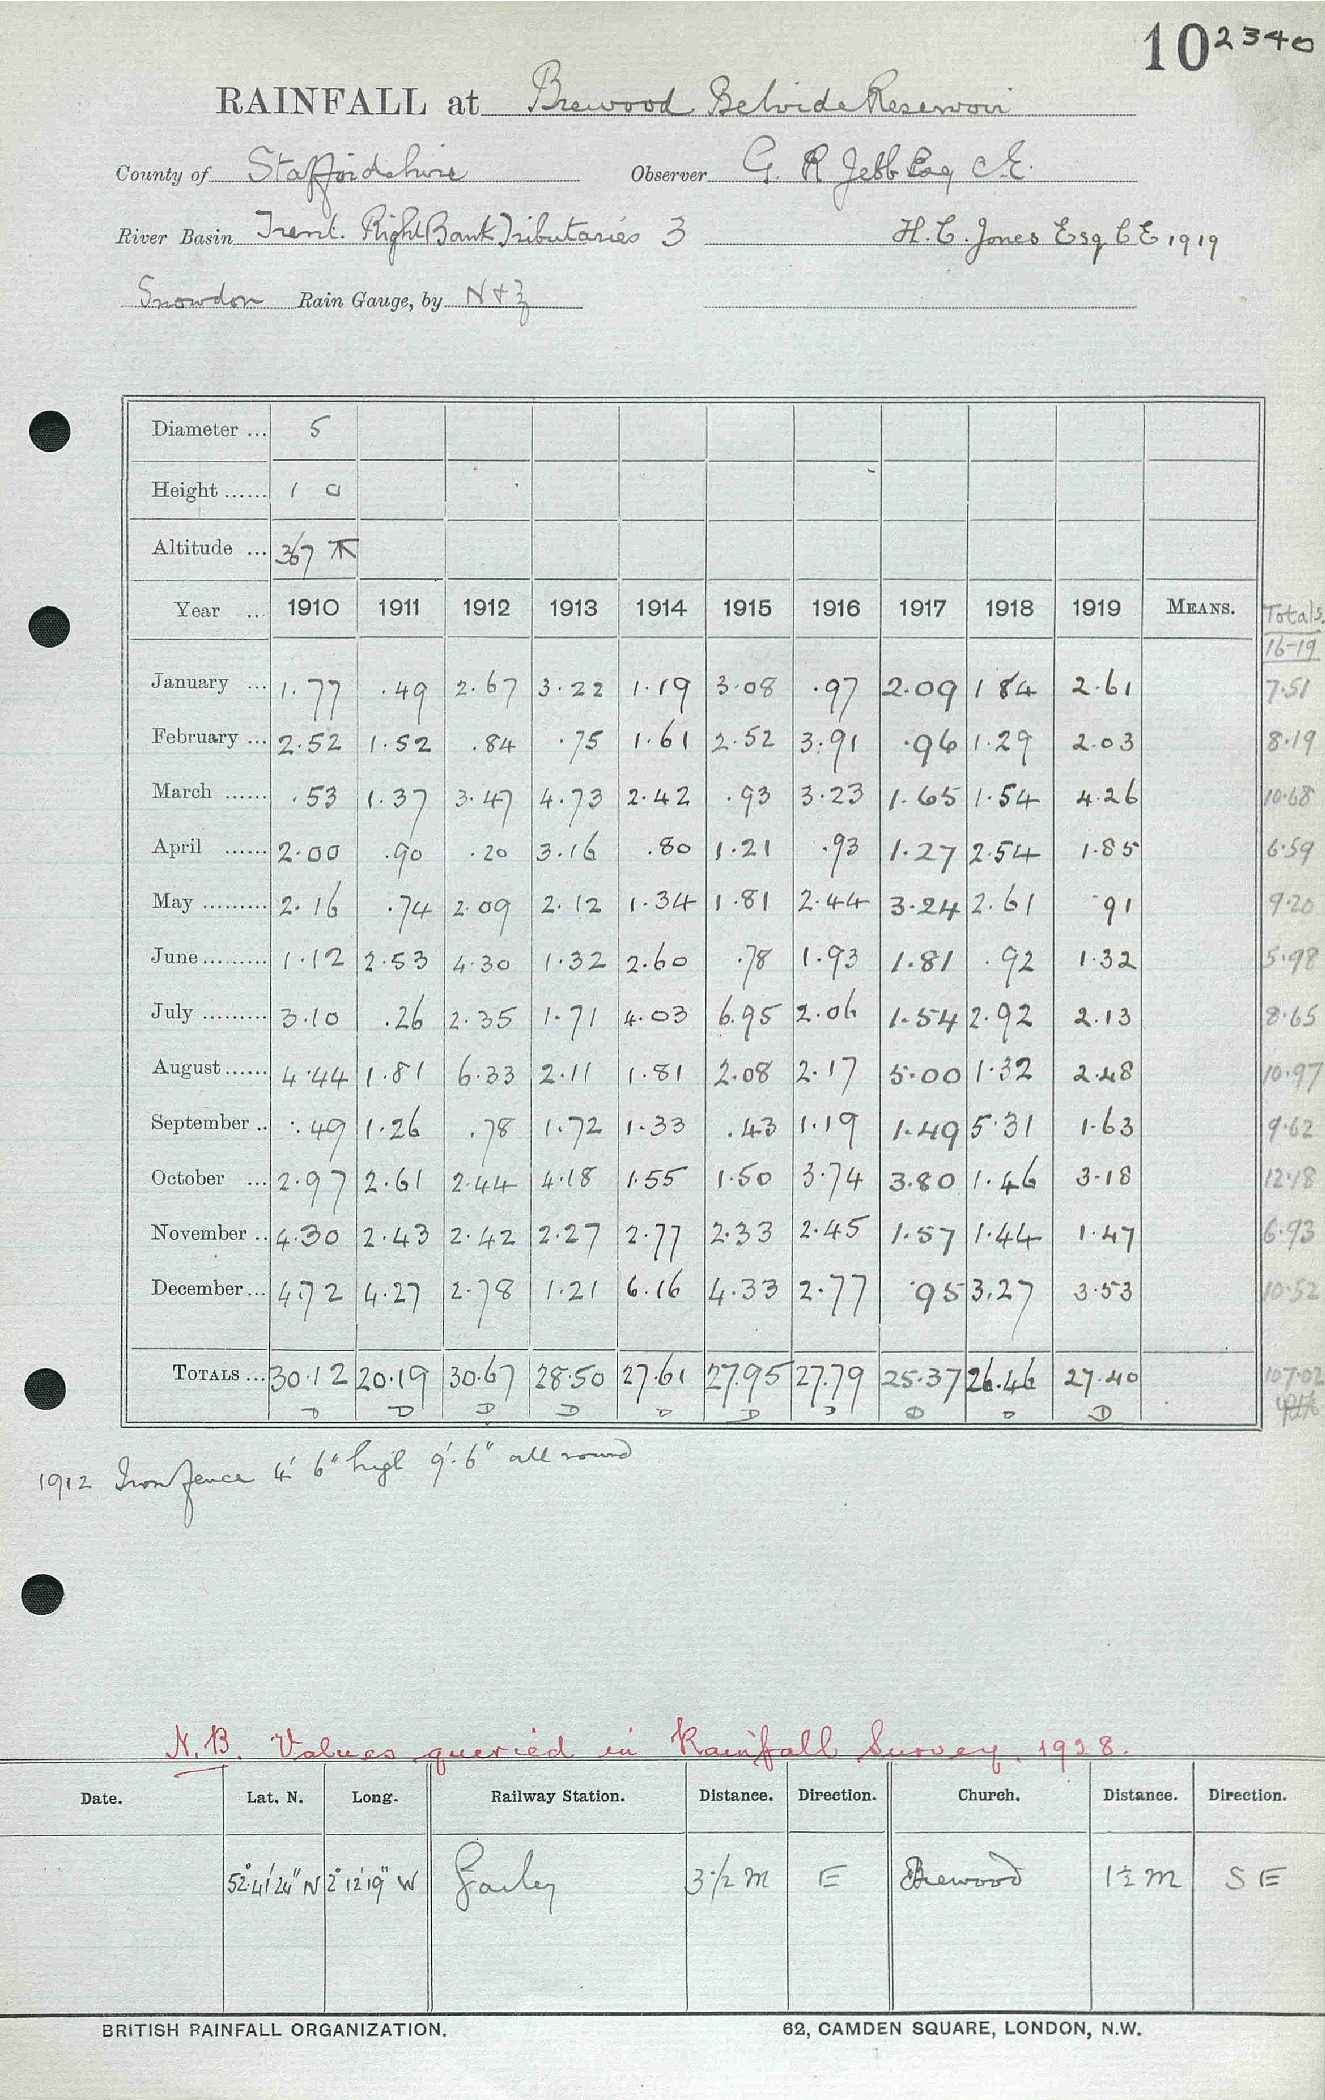 10 2340
RAINFALL at Brewood Belvide Reservoir
County of Staffordshire Observer G. R Jebb Esq C.E.
River Basin Trent. Right Bank Tributaries 3 H. C. Jones Esq C E 1919
Snowdon Rain Gauge, by N & Z
Diameter ... 5
Height ...... 1 0
Altitude ... 367
Year ... 1910 1911 1912 1913 1914 1915 1916 1917 1918 1919 MEANS. Totals
16-19
January ... 1.77 .49 2.67 3.22 1.19 3.08 .97 2.09 1 84 2.61 7.51
February ... 2.52 1.52 .84 .75 1.61 2.52 3.91 .96 1.29 2.03 8.19
March ...... .53 1.37 3.47 4.73 2.42 .93 3.23 1.65 1.54 4.26 10.68
April ...... 2.00 .90 .20 3.16 .80 1.21 .93 1.27 2.54 1.85 6.59
May ......... 2.16 .74 2.09 2.12 1.34 1.81 2.44 3.24 2.61 .91 9.20
June ......... 1.12 2.53 4.30 1.32 2.60 .78 1.93 1.81 .92 1.32 5.98
July ......... 3.10 .26 2.35 1.71 4.03 6.95 2.06 1.54 2.92 2.13 8.65
August ...... 4.44 1.81 6.33 2.11 1.81 2.08 2.17 5.00 1.32 2.48 10.97
September .. .49 1.26 .78 1.72 1.33 .43 1.19 1.49 5.31 1.63 9.62
October ... 2.97 2.61 2.44 4.18 1.55 1.50 3.74 3.80 1.46 3.18 12.18
November .. 4.30 2.43 2.42 2.27 2.77 2.33 2.45 1.57 1.44 1.47 6.93
December ... 4.72 4.27 2.78 1.21 6.16 4.33 2.77 .95 3.27 3.53 10.52
TOTALS ... 30.12 20.19 30.67 28.50 27.61 27.95 27.79 25.37 26.46 27.40 107.02
D D D D D D D D D D
1912 Iron fence 4' 6" high 9'.6" all round
N.B. Values queried in Rainfall Survey. 1928.
Date. Lat. N. Long. Railway Station. Distance. Direction. Church. Distance. Direction.
52°41'24" N 2°12'19" W Gailey 3 1/2 m E Brewood 1 1/2 m S E
BRITISH RAINFALL ORGANIZATION. 62, CAMDEN SQUARE, LONDON, N.W.